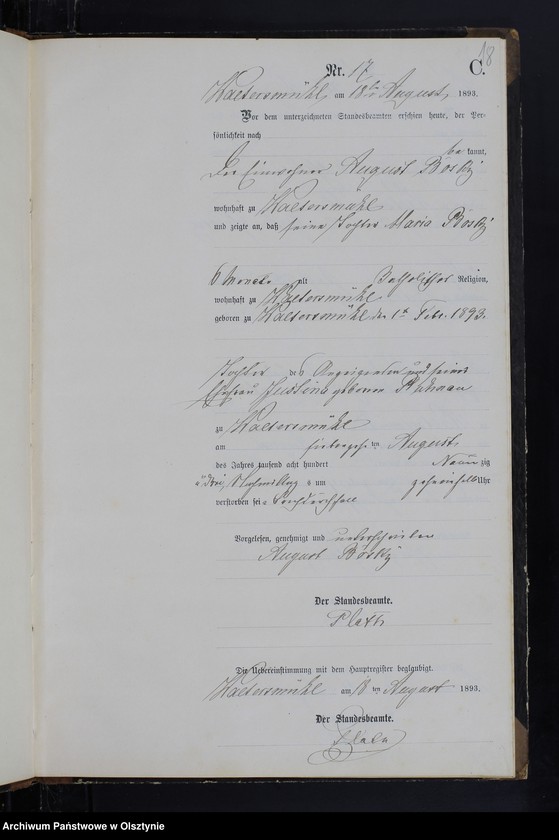 18
Nr. 17 C.
Waltersmühl am 18ten August 1893.
Vor dem unterzeichneten Standesbeamten erschien heute, der Per-
sönlichkeit nach
be kannt,
Der Einwohner August
wohnhaft zu Waltersmühl
und zeigte an, daß seine Tochter Maria
6 Monate alt Katholischer Religion,
wohnhaft zu Waltersmühl
geboren zu Waltersmühl den 1t Febr. 1893.
Tochter des Anzeigenden und seiner
Ehefrau Justina geborene
zu Waltersmühl
am ten August
des Jahres tausend acht hundert Neun zig
u drei, Nachmittag s um Uhr
verstorben sei
Vorgelesen, genehmigt und unterschrieben
August
Der Standesbeamte.
Die Uebereinstimmung mit dem Hauptregister beglaubigt.
Waltersmühl am 18 ten August 1893.
Der Standesbeamte.
Archiwum Państwowe w Olsztynie